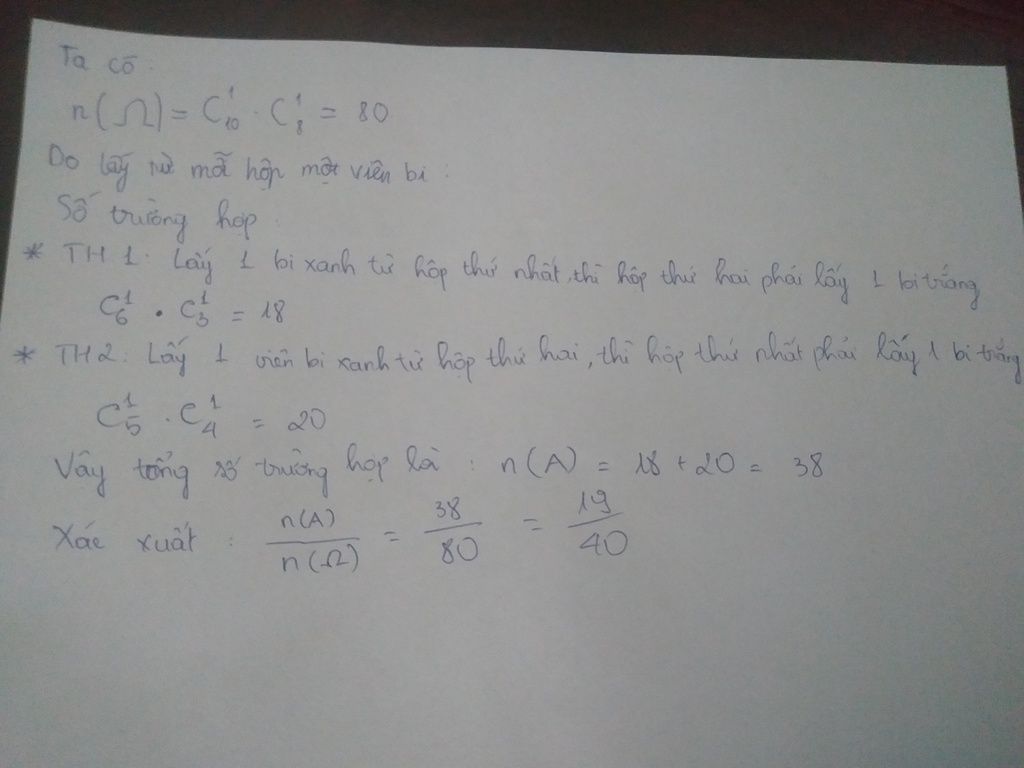 Ta có:
n(Ω) = C¹₁₀ . C¹₈ = 80
Do lấy từ mỗi hộp một viên bi :
Số trường hợp :
* TH 1: Lấy 1 bi xanh từ hộp thứ nhất, thì hộp thứ hai phải lấy 1 bi trắng
C¹₆ . C¹₃ = 18
* TH 2: Lấy 1 viên bi xanh từ hộp thứ hai, thì hộp thứ nhất phải lấy 1 bi trắng
C¹₅ . C¹₄ = 20
Vậy tổng số trường hợp là : n(A) = 18 + 20 = 38
Xác xuất : n(A)/n(Ω) = 38/80 = 19/40